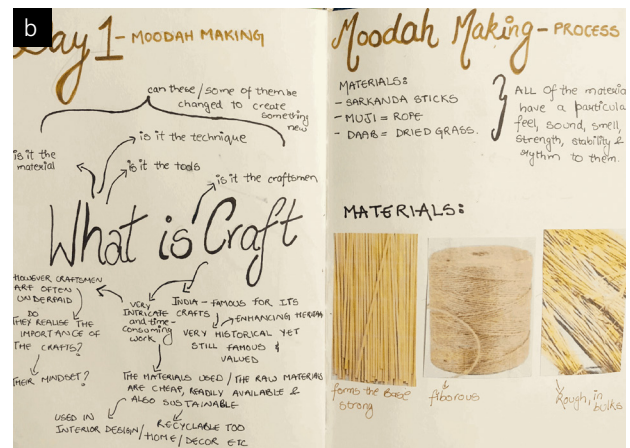 b
Day 1 - MOODAH MAKING
can these/some of them be
changed to create
something
new
is it the technique
is it the
material
is it the tools
is it the craftsmen
What is Craft
HOWEVER CRAFTSMEN
ARE OFTEN
UNDERPAID
DO
THEY REALISE THE
IMPORTANCE OF
THE CRAFTS?
THEIR MINDSET?
VERY
INTRICATE
and time-
consuming
work
INDIA - FAMOUS FOR ITS
CRAFTS
ENHANCING
VERY HISTORICAL YET
STILL FAMOUS &
VALUED
THE MATERIALS USED / THE RAW MATERIALS
ARE CHEAP, READILY AVAILABLE &
ALSO SUSTAINABLE
USED IN
INTERIOR DESIGN/
HOME/DECOR ETC
RECYCLABLE TOO
Moodah Making - PROCESS
MATERIALS:
- SARKANDA STICKS
- MUJI = ROPE
- DAAB = DRIED GRASS.
ALL OF THE materia
have a particula
feel, sound, smell,
strength, stability &
rythm to them.
MATERIALS:
forms the base
strong
fiborous
Rough, in
bulks